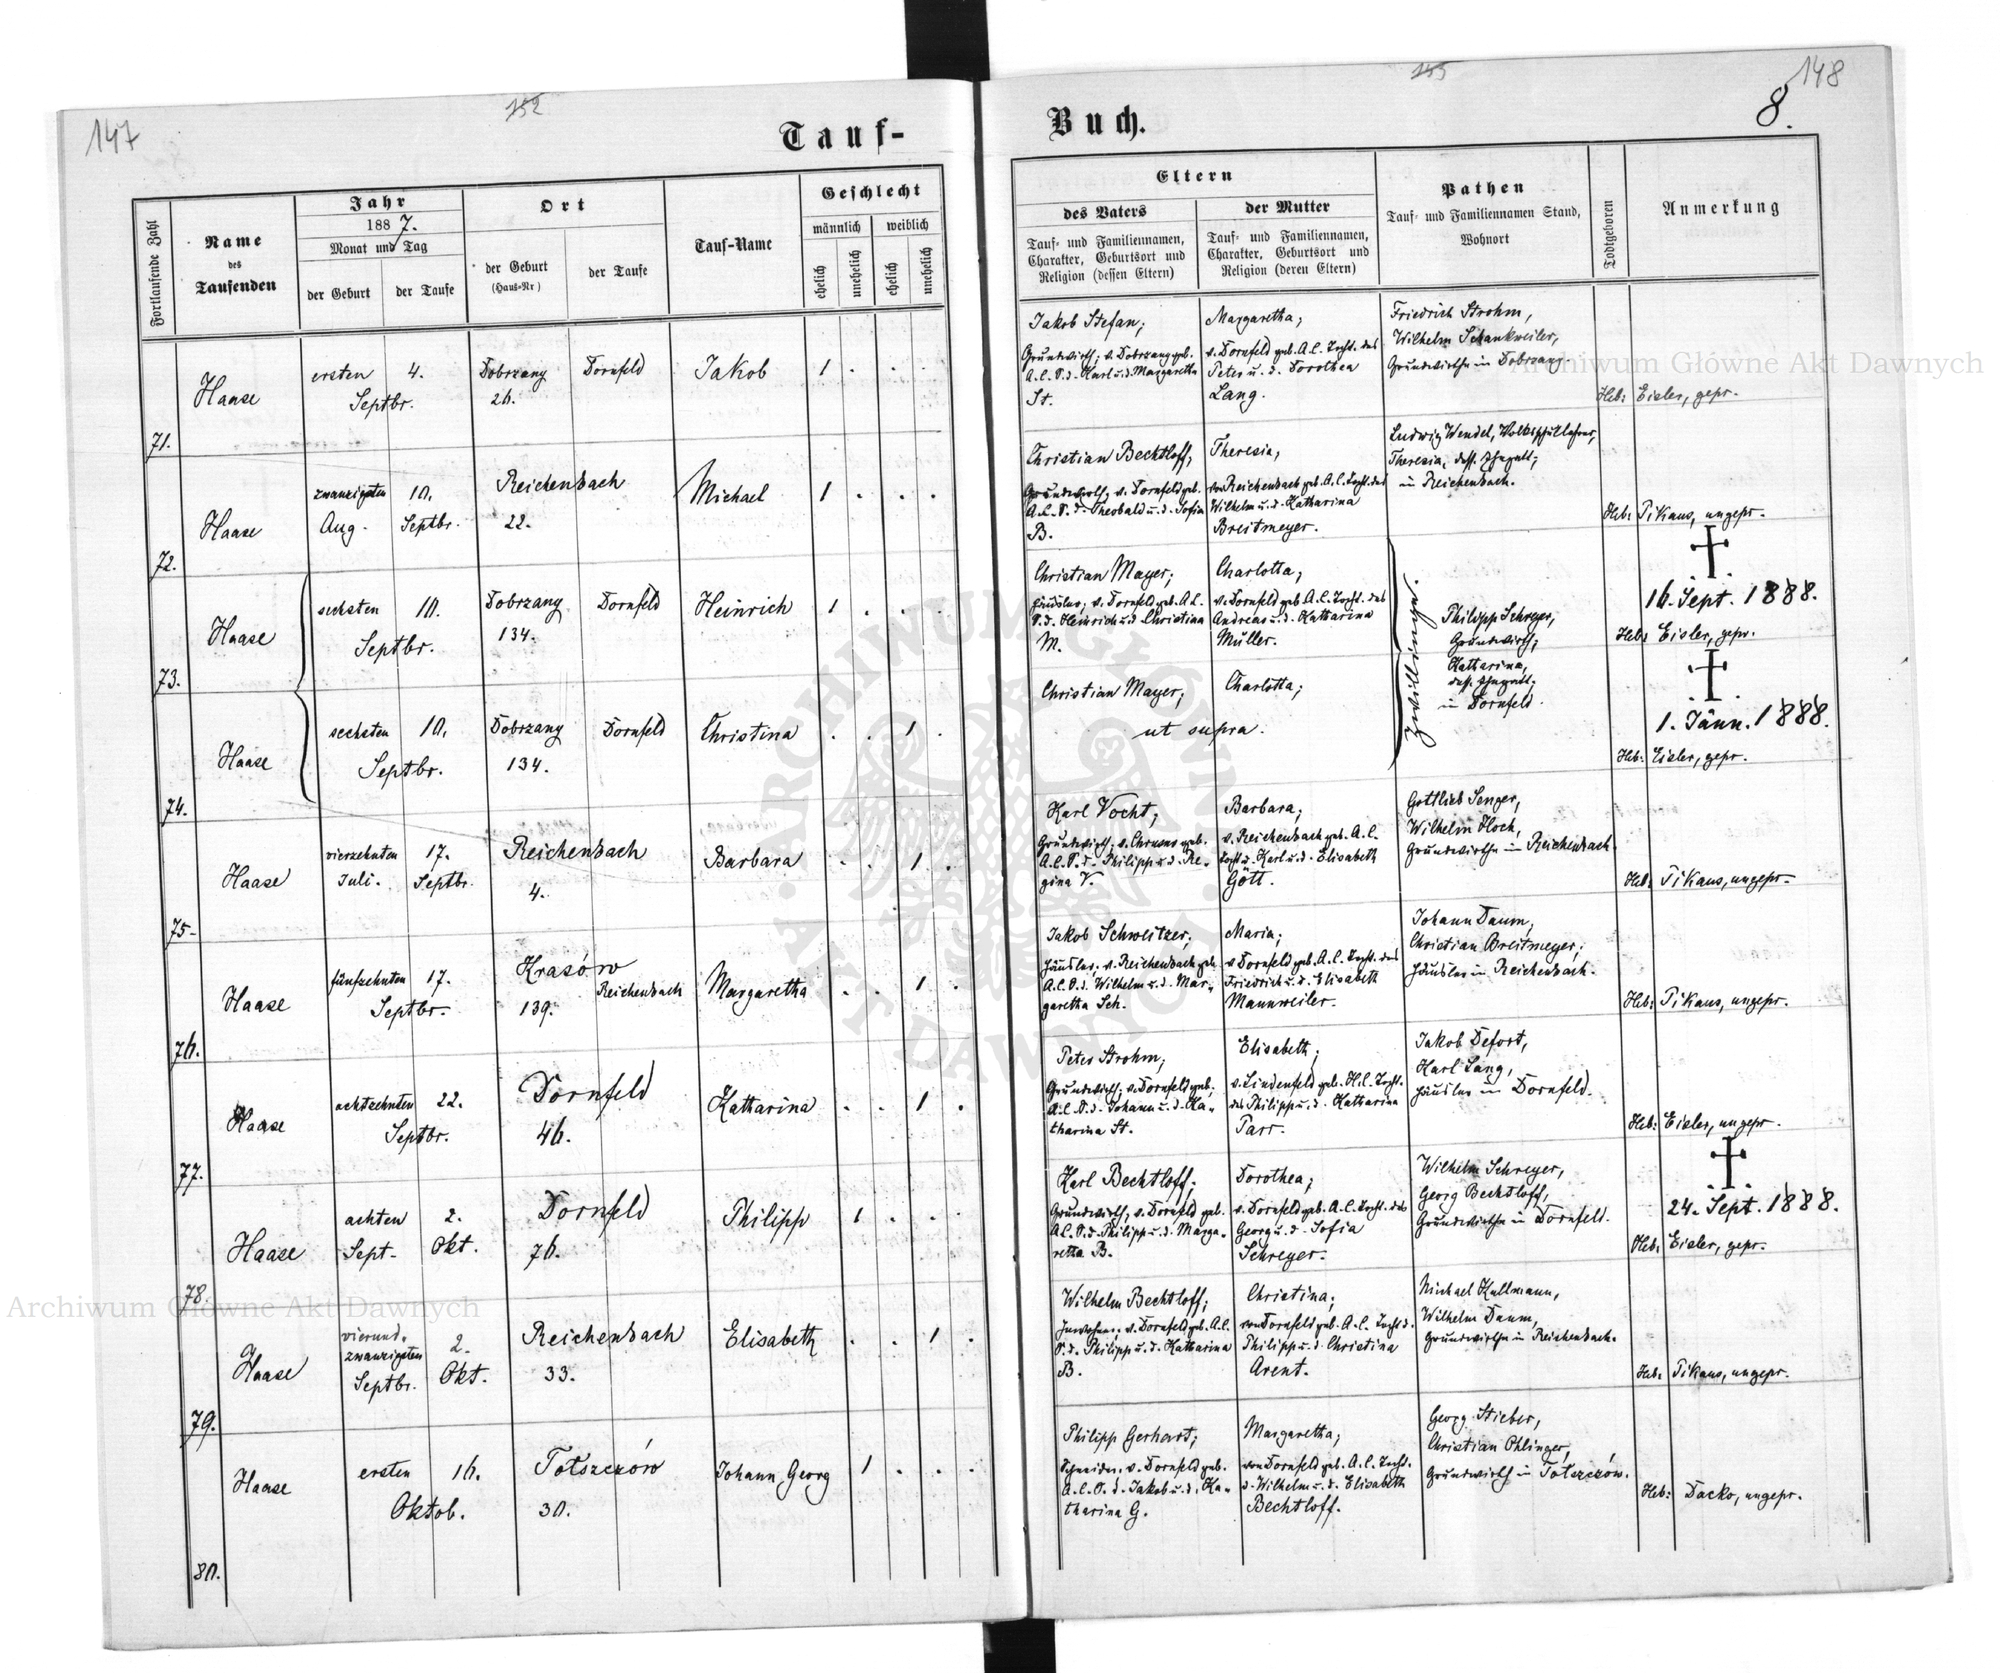 147
152
Tauf-
Buch.
155
148
8.
Fortlaufende Zahl
Name
des
Taufenden
Jahr
1887.
Monat und Tag
der Geburt
der Taufe
Ort
der Geburt
(Haus-Nr)
der Taufe
Tauf-Name
Geschlecht
männlich
weiblich
ehelich
unehelich
ehelich
unehelich
Eltern
des Vaters
Tauf- und Familiennamen,
Charakter, Geburtsort und
Religion (dessen Eltern)
der Mutter
Tauf- und Familiennamen,
Charakter, Geburtsort und
Religion (deren Eltern)
Pathen
Tauf- und Familiennamen Stand,
Wohnort
Todtgeboren
Anmerkung
71.
Haase
ersten 4.
Septbr.
Dobrzany
26.
Dornfeld
Jakob
1 . . .
Jakob Stefan;
Grundwirth; v. Dobrzany geb.
A.C. S.d. Karl u.d. Margaretha
St.
Margaretha;
v. Dornfeld geb. A.C. Tocht. des
Peter u. d. Dorothea
Lang.
Friedrich Strohm,
Wilhelm Schankweiler,
Grundwirthe in Dobrzany.
Heb: Eisler, gepr.
72.
Haase
zwanzigsten
Aug.
10.
Septbr.
Reichenbach
22.
Michael
1 . . .
Christian Bechtloff,
Grundwirth, v. Dornfeld geb.
A.C. S.d. Theobald u.d. Sofia
B.
Theresia,
von Reichenbach geb. A.C. Tocht. des
Wilhelm u. d. Katharina
Breitmeyer.
Ludwig Wendel, Volksschullehrer,
Theresia, dess. Ehegatt;
in Reichenbach.
Heb: Pikaus, ungepr.
73.
Haase
sechsten 10.
Septbr.
Dobrzany
134.
Dornfeld
Heinrich
1 . . .
Christian Mayer;
Häusler; v. Dornfeld geb. A.C.
S.d. Heinrich u.d. Christina
M.
Charlotta;
v. Dornfeld geb. A.C. Tocht. des
Andreas u.d. Katharina
Müller.
Zwillinge.
Philipp Schreyer,
Grundwirth,
Katharina,
dess. Ehegatt;
in Dornfeld.
16. Sept. 1888.
Heb: Eisler, gepr.
74.
Haase
sechsten 10.
Septbr.
Dobrzany
134.
Dornfeld
Christina
. . 1 .
Christian Mayer;
Charlotta;
ut supra.
1. Jänn. 1888.
Heb: Eisler, gepr.
75.
Haase
vierzehnten
Juli.
17.
Septbr.
Reichenbach
4.
Barbara
. . 1 .
Karl Vocht;
Grundwirth; v. Chrusno geb.
A.C. S.d. Philipp u.d. Re-
gina V.
Barbara;
v. Reichenbach geb. A.C.
Tocht. d. Karl u.d. Elisabeth
Gött.
Gottlieb Senger,
Wilhelm Hoch,
Grundwirthe in Reichenbach.
Heb: Pikaus, ungepr.
76.
Haase
fünfzehnten 17.
Septbr.
Krasów
139.
Reichenbach
Margaretha
. . 1 .
Jakob Schweitzer;
Häusler; v. Reichenbach geb.
A.C. S.d. Wilhelm u.d. Mar-
garetha Sch.
Maria;
v. Dornfeld geb. A.C. Tocht. des
Friedrich u.d. Elisabeth
Mannweiler.
Johann Daum,
Christian Breitmeyer;
Häusler in Reichenbach.
Heb: Pikaus, ungepr.
77.
Haase
achtzehnten 22.
Septbr.
Dornfeld
46.
Katharina
. . 1 .
Peter Strohm;
Grundwirth; v. Dornfeld geb.
A.C. S.d. Johann u.d. Ka-
tharina St.
Elisabeth;
v. Lindenfeld geb. H.C. Tocht.
des Philipp u.d. Katharina
Parr.
Jakob Defort,
Karl Lang,
Häusler in Dornfeld.
Heb: Eisler, ungepr.
78.
Haase
achten
Sept.
2.
Okt.
Dornfeld
76.
Philipp
1 . . .
Karl Bechtloff;
Grundwirth, v. Dornfeld geb.
A.C. S.d. Philipp u.d. Marga-
retha B.
Dorothea;
v. Dornfeld geb. A.C. Tocht. des
Georg u.d. Sofia
Schreyer.
Wilhelm Schreyer,
Georg Bechtloff,
Grundwirthe in Dornfeld.
24. Sept. 1888.
Heb: Eisler, gepr.
79.
Haase
vierund-
zwanzigsten
Septbr.
2.
Okt.
Reichenbach
33.
Elisabeth
. . 1 .
Wilhelm Bechtloff;
Inwohner; v. Dornfeld geb. A.C.
S.d. Philipp u.d. Katharina
B.
Christina;
von Dornfeld geb. A.C. Tocht. d.
Philipp u.d. Christina
Arent.
Michael Kullmann,
Wilhelm Daum,
Grundwirthe in Reichenbach.
Heb: Pikaus, ungepr.
80.
Haase
ersten 16.
Oktob.
Tołszczów
30.
Johann Georg
1 . . .
Philipp Gerhart;
Schneider; v. Dornfeld geb.
A.C. S.d. Jakob u.d. Ka-
tharina G.
Margaretha;
von Dornfeld geb. A.C. Tocht.
d. Wilhelm u.d. Elisabeth
Bechtloff.
Georg Stieber,
Christian Ohlinger,
Grundwirth in Tołszczów.
Heb: Dacko, ungepr.
Archiwum Główne Akt Dawnych
Archiwum Główne Akt Dawnych
ARCHIWUM GŁÓWNE AKT DAWNYCH